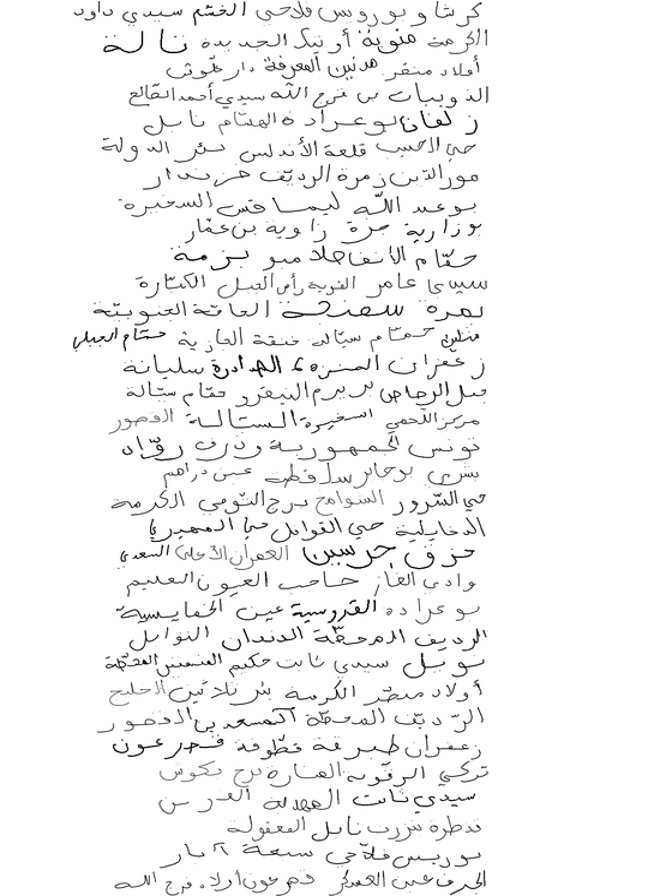 كرشا و بورويس فلاحي الخشم سيدي داود
الكرمة منوبة أوتيك الجديدة تالة
أولاد منصر مدنين المعرفة دار علوش
الذويبات بن فرج الله سيدي أحمد الصالح
زلفان بوعرادة الهيشام نابل
حي الحبيب قلعة الأندلس بئر الدولة
نور الدين زمرة الرديف خزندار
بوعبد الله ليماقس السخيرة
بوزارية حزة زاوية بن عمار
حمام الأنف بزمة
سيدي عامر القرية رأس الجبل الكبارة
نمرة سفنجة الحافة الجنوبية
منزل حمام سيالة خنقة الجازية حمام الجبلي
زعفران المنزه 6 الهدادرة سليانة
جبل الرصاص بريرم البيفرو حمام سيالة
مركز اللحمي السخيرة الستالة القصور
تونس الجمهورية وذرف روّاد
بشري بوجابر ساقطة عين دراهم
حي السرور السوامح برج التومي الكرمة
الدخايلية حي القوافل حي المهيري
حزق جرسين العمران الأعلى السعدي
وادي الغاز حاجب العيون العليم
بوعرادة القروسية عين الخمايسية
الرديف المحطة الدندان النوايل
نويل سيدي ثابت حكيم
أولاد منصر الكرمة بئر ثلاثين الخليج
الرديف المحطة القصور
زعفران طبرقة قطوفة فجرعون
تركي الرقوبة المنارة برج بكوش
سيدي ثابت المهدية العرين
قنطرة بنزرت نابل المعقولة
بورويس فلاحي سبعة آبار
الجرف عين العسكر فجرعون أولاد فرج الله